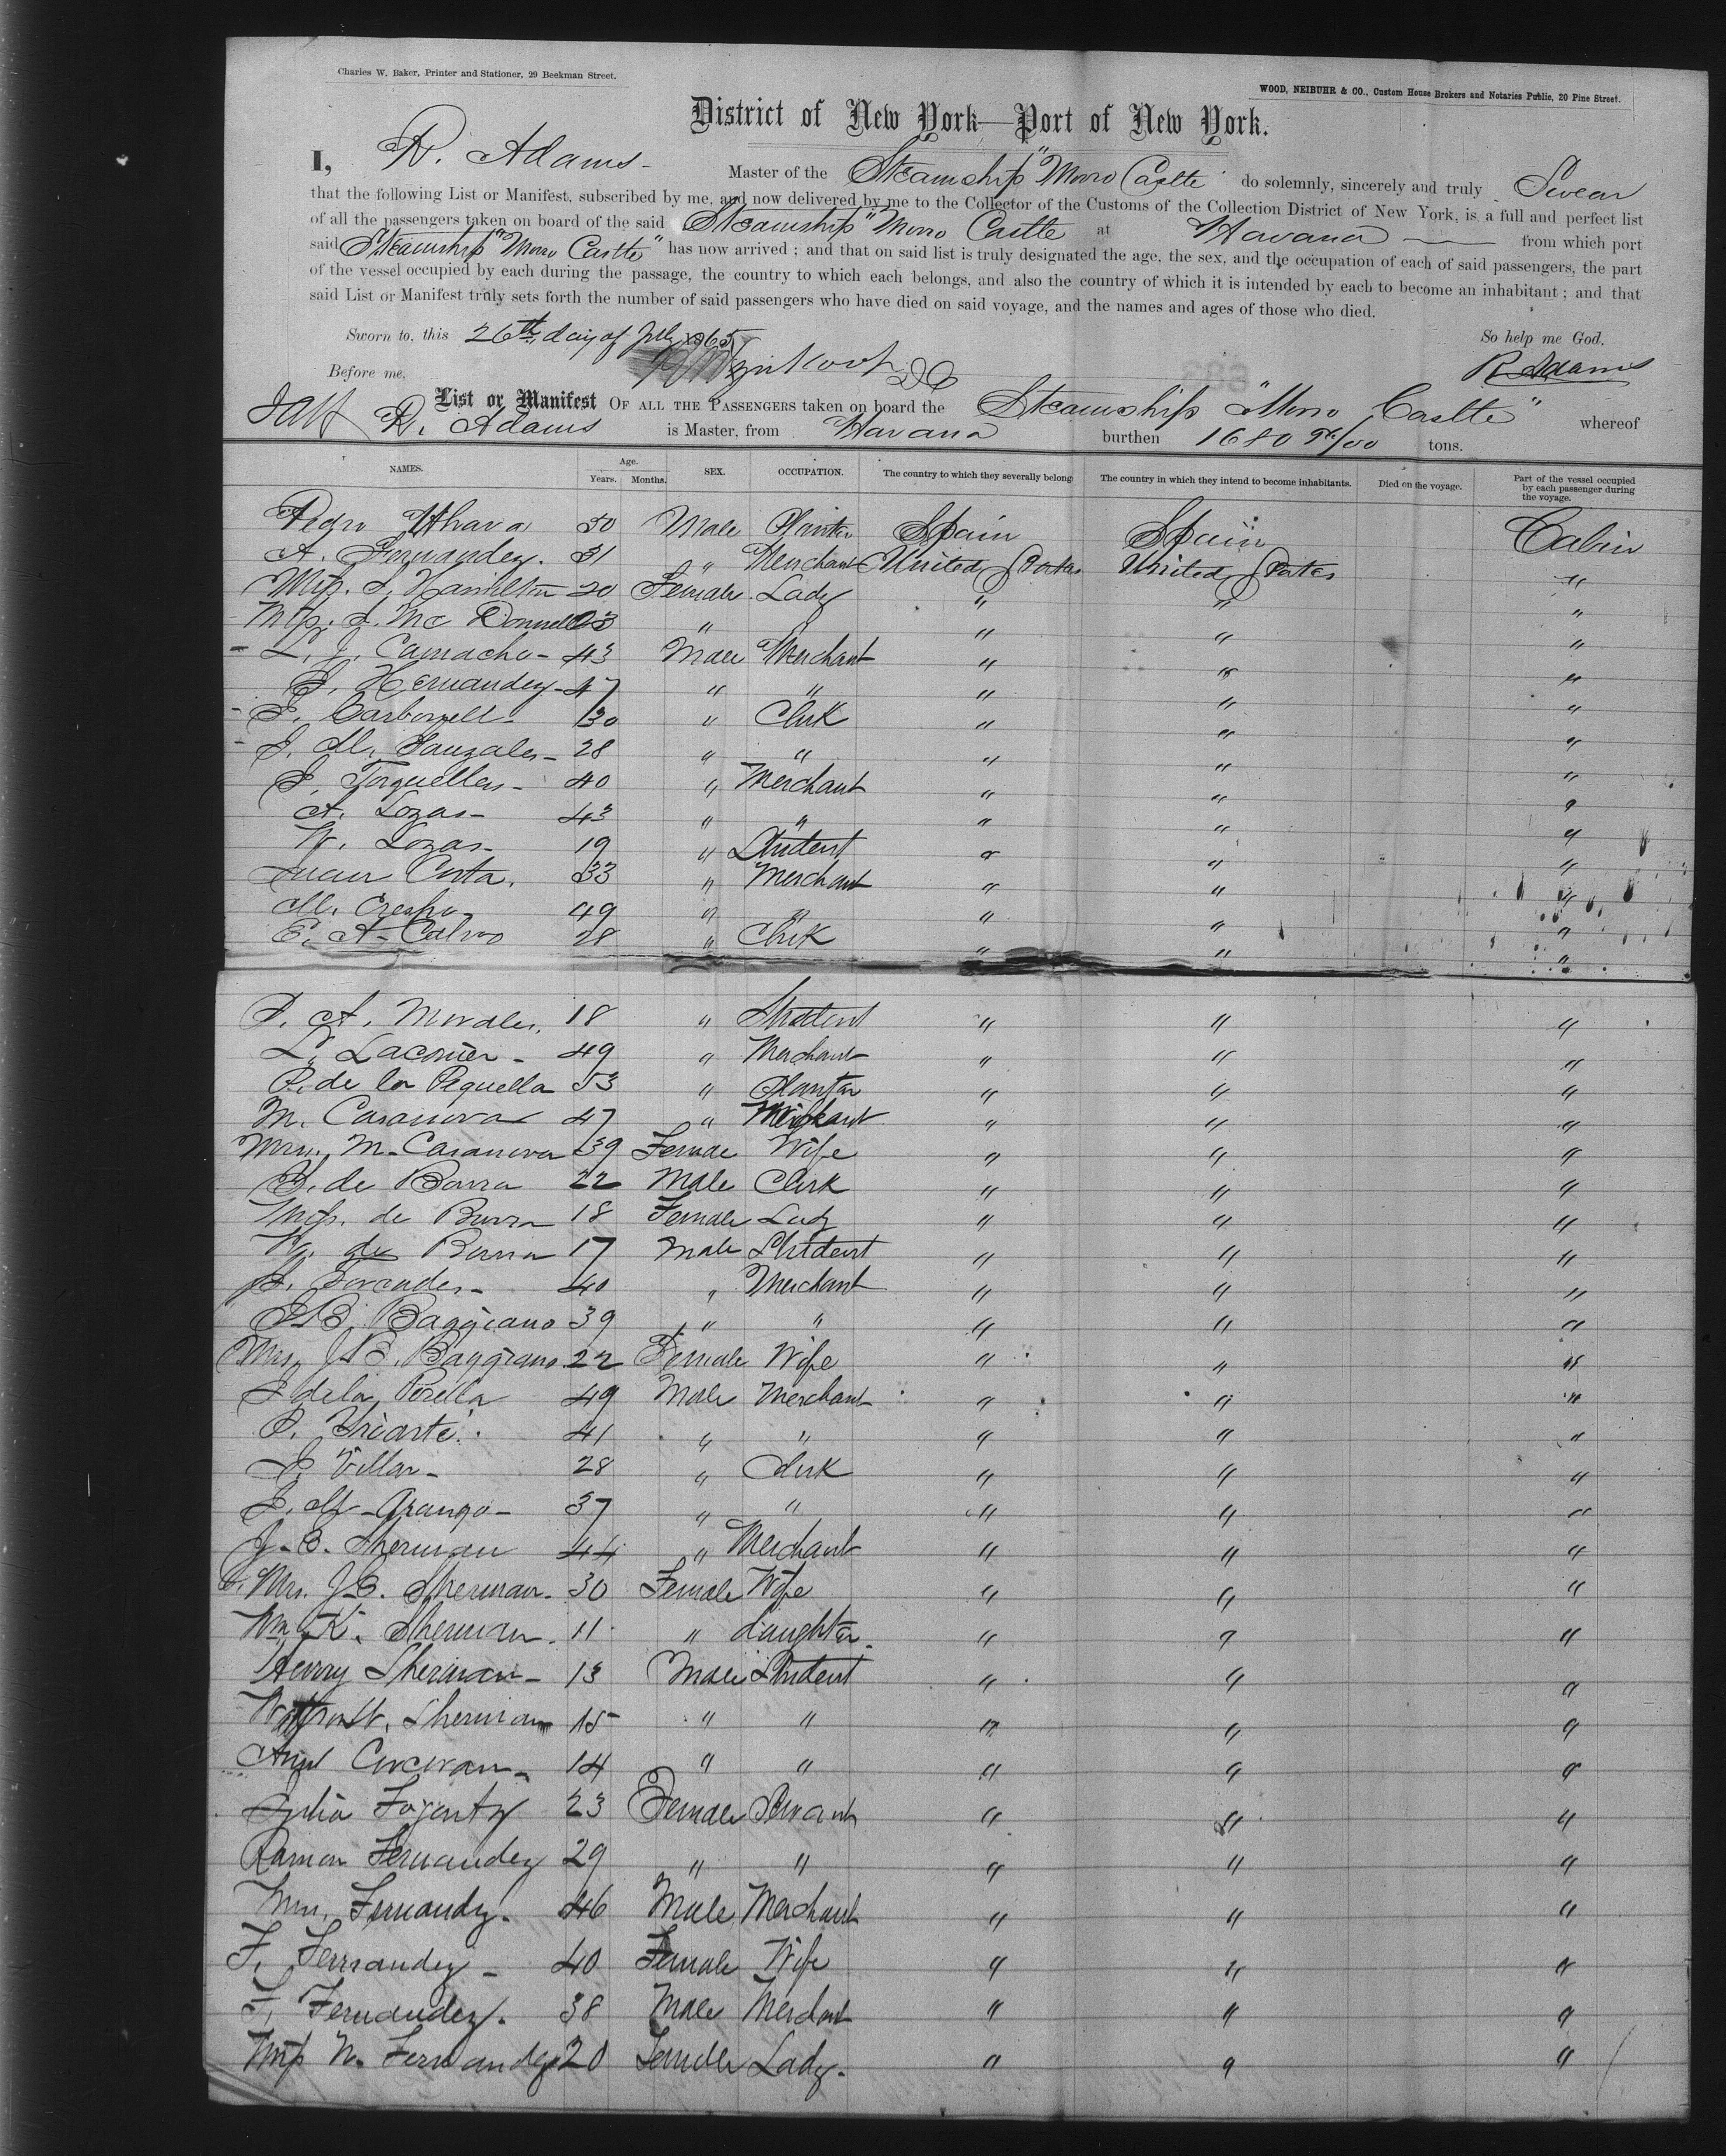 Charles W. Baker, Printer and Stationer, 29 Beekman Street.
WOOD, NEIBUHR & CO., Custom House Brokers and Notaries Public, 20 Pine Street.
District of New York—Port of New York.
I, R. Adams Master of the Steamship "Morro Castle" do solemnly, sincerely and truly Swear
that the following List or Manifest, subscribed by me, and now delivered by me to the Collector of the Customs of the Collection District of New York, is a full and perfect list
of all the passengers taken on board of the said Steamship "Morro Castle at Havana from which port
said Steamship "Morro Castle" has now arrived; and that on said list is truly designated the age, the sex, and the occupation of each of said passengers, the part
of the vessel occupied by each during the passage, the country to which each belongs, and also the country of which it is intended by each to become an inhabitant; and that
said List or Manifest truly sets forth the number of said passengers who have died on said voyage, and the names and ages of those who died.
Sworn to, this 26th day of July 1865 So help me God.
Before me, R Adams
List or Manifest OF ALL THE PASSENGERS taken on board the Steamship "Morro Castle" whereof
R. Adams is Master, from Havana burthen 1680 tons.
NAMES. Age. Years. Months. SEX. OCCUPATION. The country to which they severally belong. The country in which they intend to become inhabitants. Died on the voyage. Part of the vessel occupied by each passenger during the voyage.
Pedro 50 Male Planter Spain Spain Cabin
A. Fernandez. 31 " Merchant United States United States "
Miss. S. Hamilton 20 Female Lady " " "
Miss. S. Mc Donnell 23 " " " "
L. J. Camacho 43 Male Merchant " " "
J. Hernandez 47 " " " " "
J. Carbonell 30 " Clerk " " "
J. M. Gonzales 28 " " " " "
J. Torquellas 40 " Merchant " " "
A. Lozas 43 " " " " "
W. Lozas 19 " Student " " "
Juan Costa. 33 " Merchant " " "
M. Crespo 49 " " " " "
E. A. Calvo 28 " Clerk " " "
P. A. Morales. 18 " Student " " "
L. 49 " Merchant " " "
P. de la Pequella 53 " Planter " " "
M. Casanova 47 " Merchant " " "
Mrs. M. Casanova 39 Female Wife " " "
J. de Barra 22 Male Clerk " " "
Miss. de Barra 18 Female Lady " " "
W. de Barra 17 Male Student " " "
40 " Merchant " " "
J.B. Baggiano 39 " " " " "
Mrs J.B. Baggiano 22 Female Wife " " "
J de la Perella 49 Male Merchant " " "
P. Yriarte. 41 " " " " "
J. Villar 28 " Clerk " " "
J. M. Arango 37 " " " " "
J. B. Sherman 44 " Merchant " " "
Mrs. J.B. Sherman. 30 Female Wife " " "
Wm K. Sherman. 11 " daughter. " " "
Henry Sherman 13 Male Student " " "
W. Sherman 15 " " " " "
Corcoran 14 " " " " "
Julia Fogarty 23 Female Servant " " "
Ramon Fernandez 29 " " " " "
Mrs. Fernandz. 46 Male Merchant " " "
F. Fernandez 40 Female Wife " " "
F. Fernandez. 38 Male Merchant " " "
Miss N. Fernandez 20 Female Lady. " " "